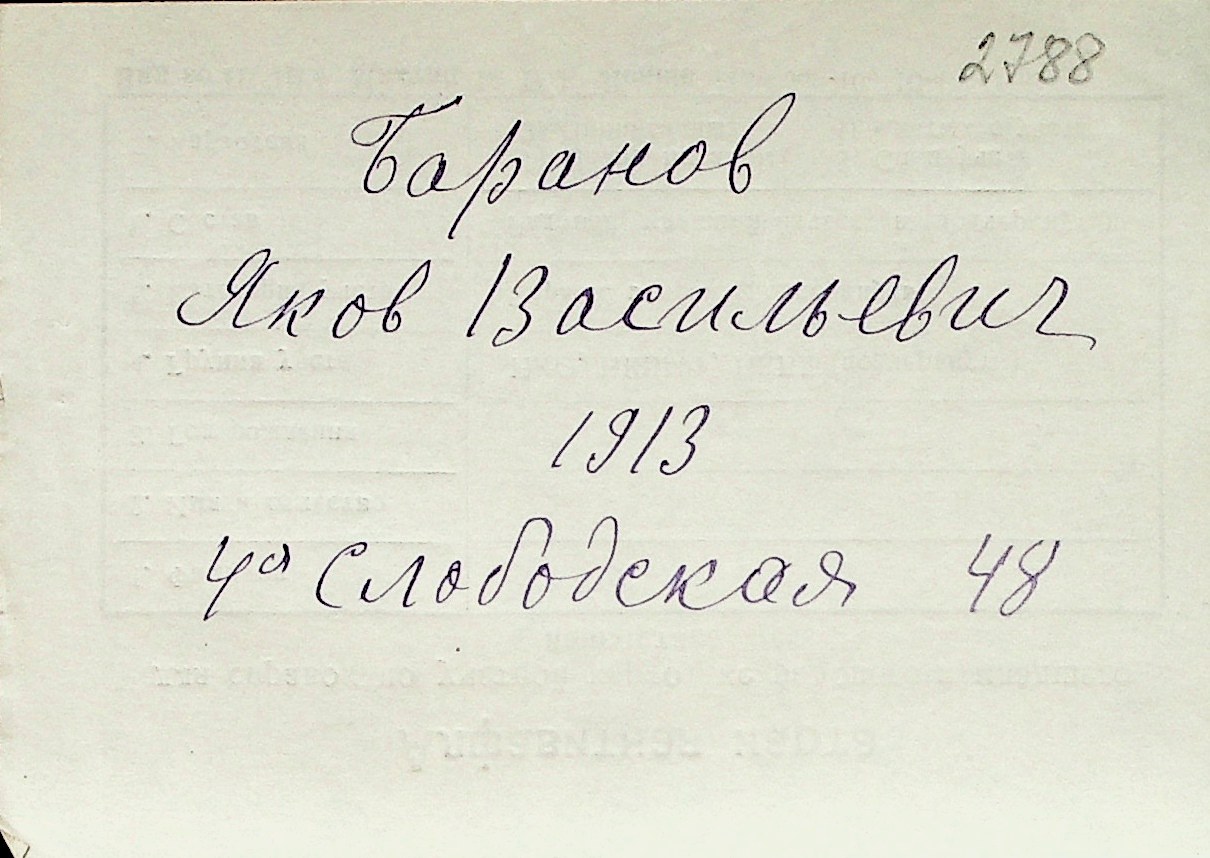 2788
Баранов
Яков Васильевич
1913
4я Слободская 48